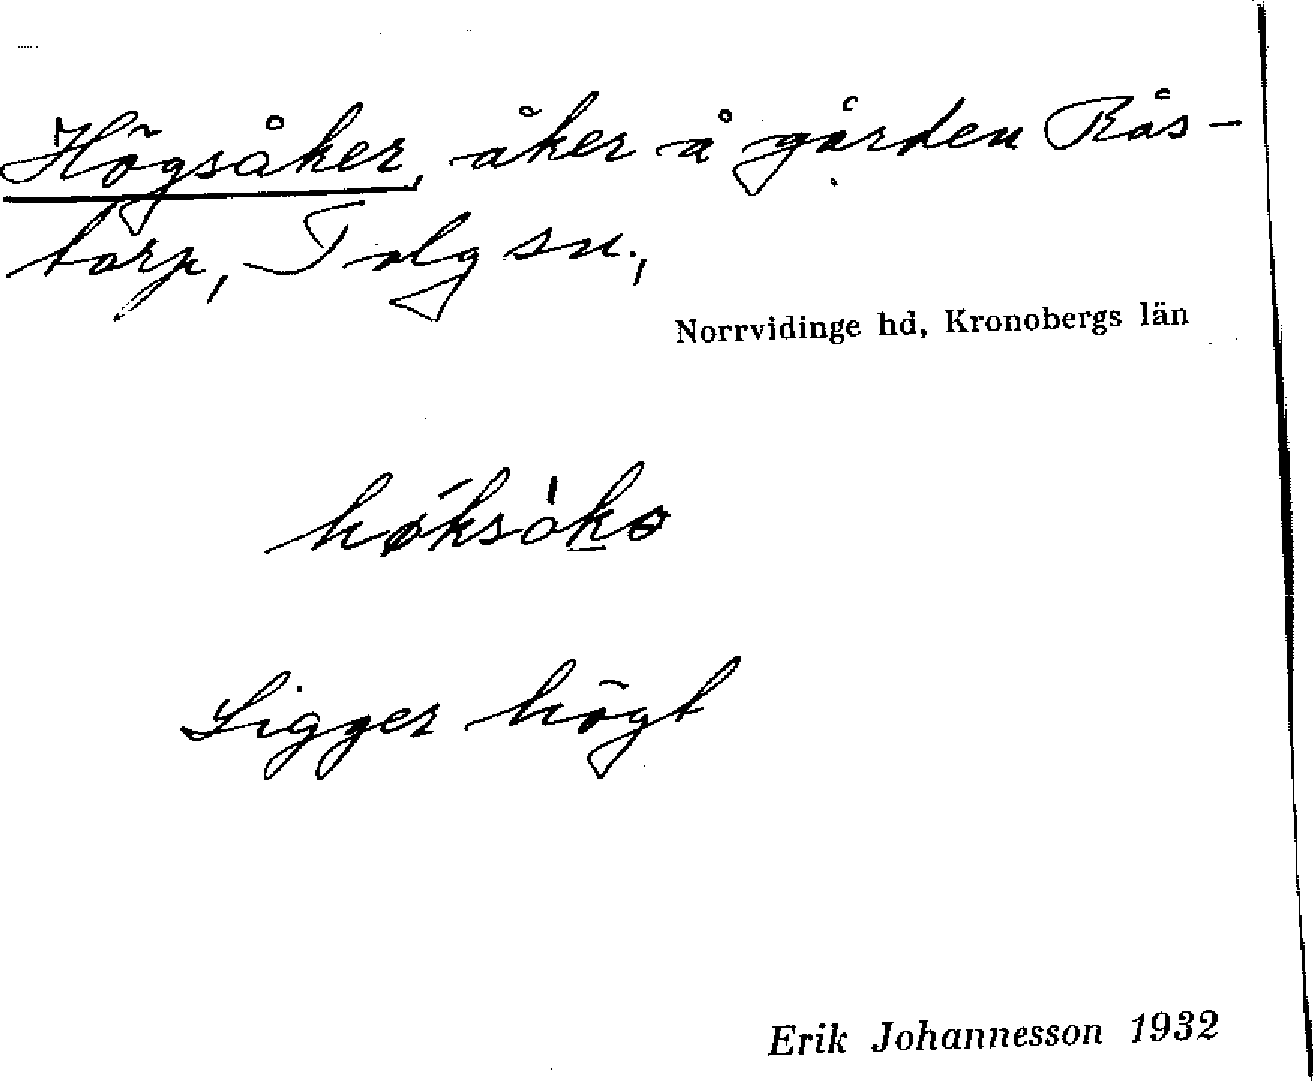 Högsåker, åker å gården Rås-
torp, Tolg sn.,
Norrvidinge hd, Kronobergs län
høksåkɘ
Ligger högt
Erik Johannesson 1932